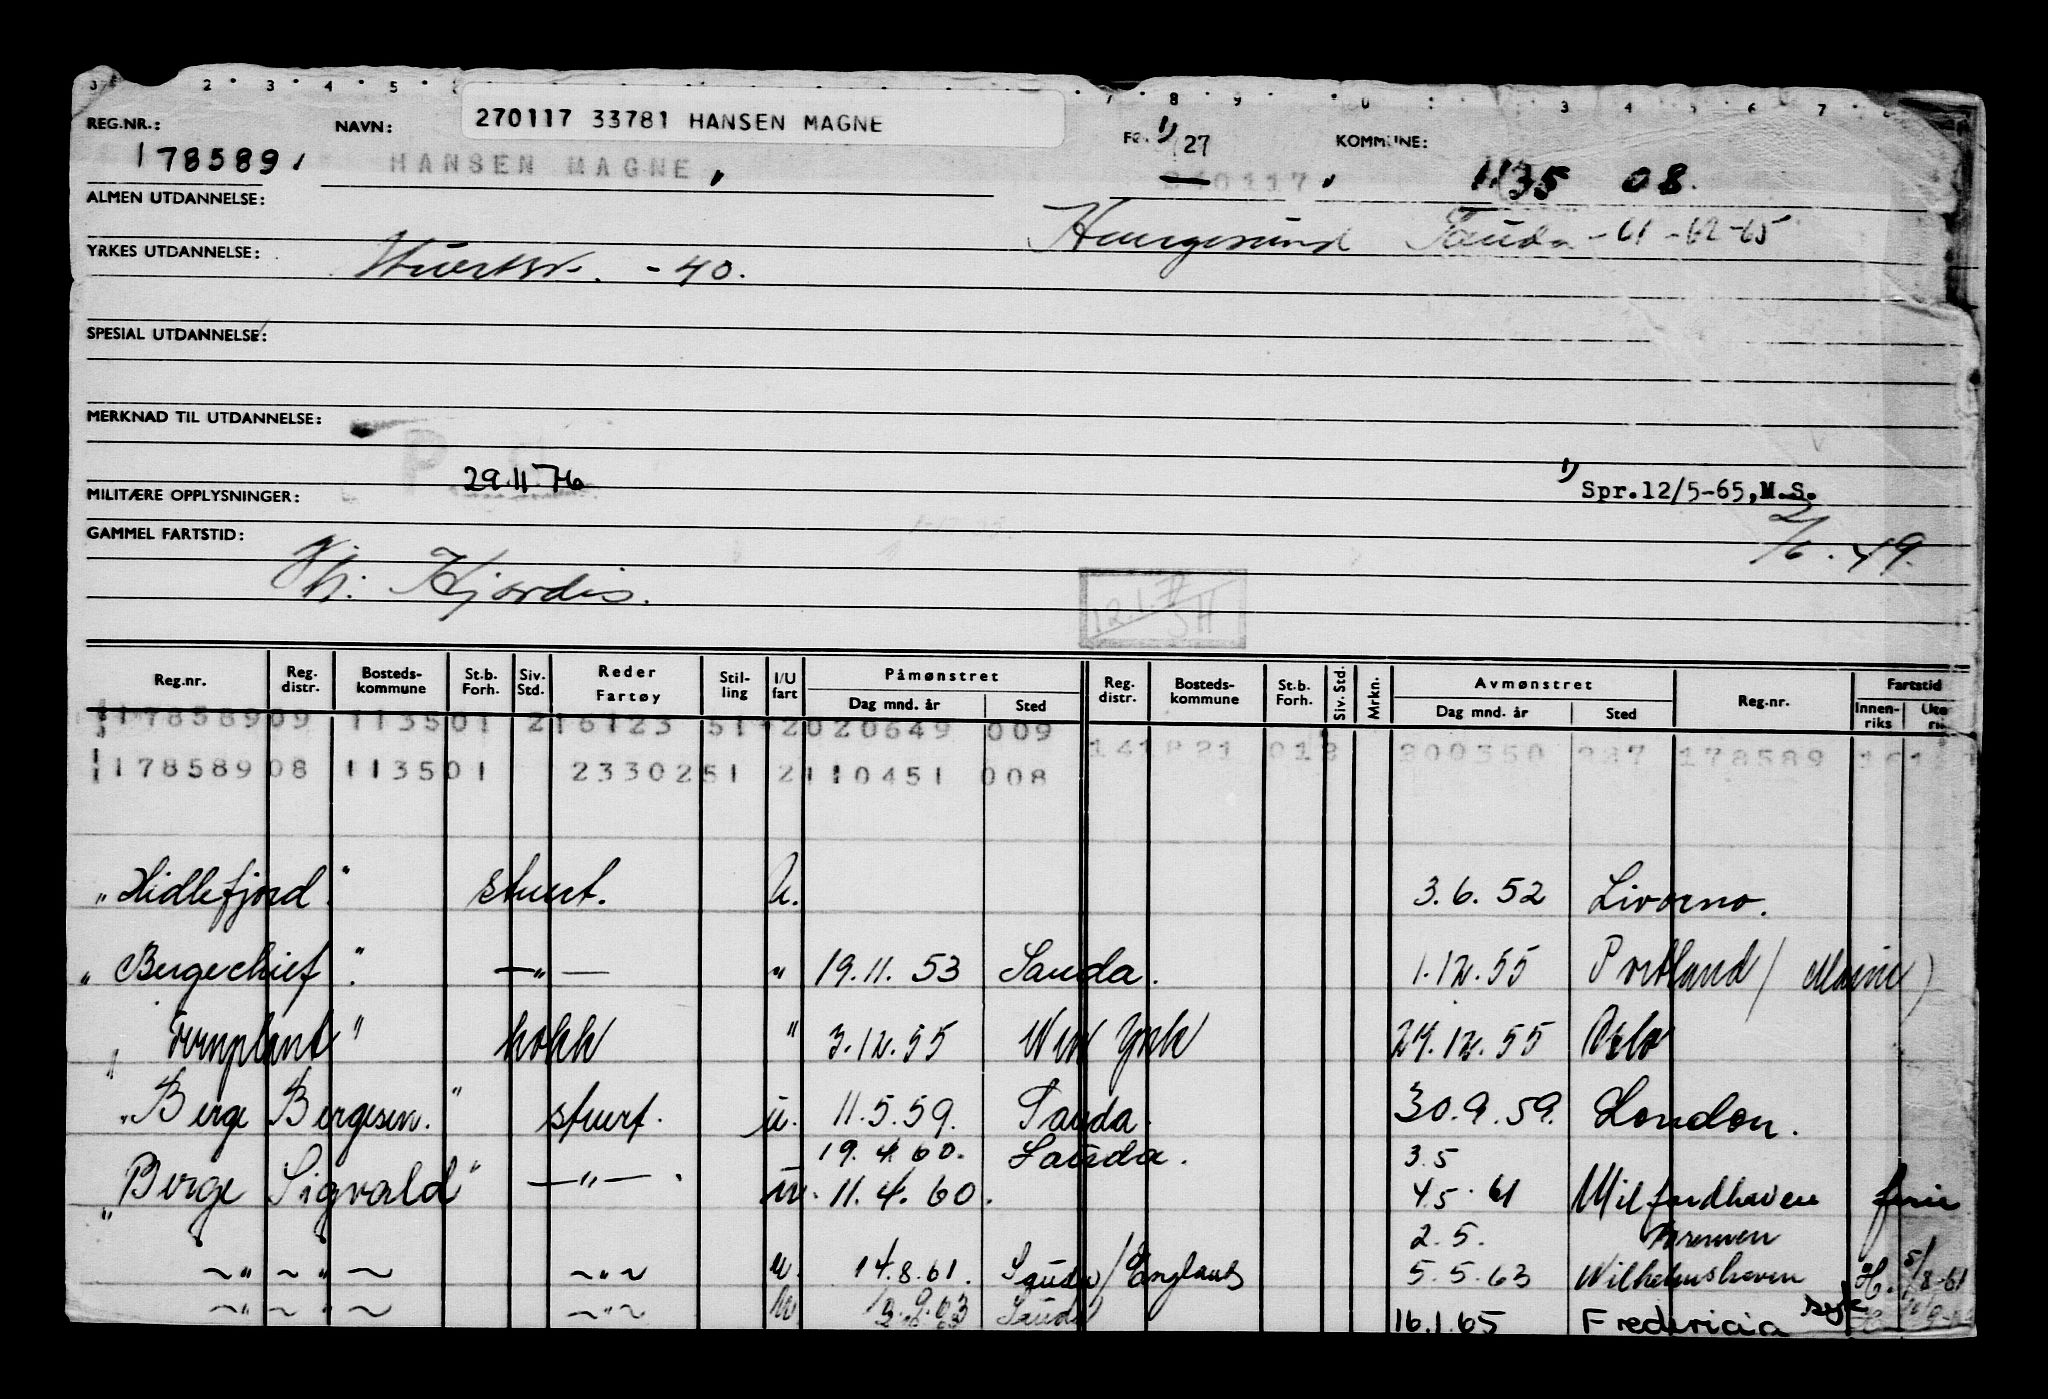 270117 33781 HANSEN MAGNE
REG.NR.: 178589 NAVN: HANSEN MAGNE, 1) 27 KOMMUNE: 1135 08.
ALMEN UTDANNELSE: Haugesund Sauda -61-62-65
YRKES UTDANNELSE: Stuertsk. -40.
SPESIAL UTDANNELSE:
MERKNAD TIL UTDANNELSE:
29.11.76
MILITÆRE OPPLYSNINGER: 1) Spr.12/5-65, M.S.
GAMMEL FARTSTID: 2/6.49.
Hj. Hjørdis.
Reg.nr. Reg. distr. Bosteds-kommune St.b. Forh. Siv. Std. Reder Fartøy Stil-ling I/U fart Påmønstret Dag mnd. år Sted Reg. distr. Bosteds-kommune St.b. Forh. Siv. Std. Mrkn. Avmønstret Dag mnd. år Sted Reg.nr. Fartstid Innen-riks
178589 09 1135 01 216123 51 2 020649 009 200350 178589
178589 08 1135 01 23302 51 2 110451 008
"Hidlefjord." stuert. U. 3.6.52 Livorno.
"Bergechief". —"— " 19.11.53 Sauda. 1.12.55 Portland (Maine)
"Fernplant" kokk " 3.12.55 New York 29.12.55 Oslo
"Berge Bergesen." stuert. u. 11.5.59. Sauda. 30.9.59. London.
19.4.60. Sauda. 3.5
"Berge Sigvald" —"—. u. 11.4.60. 4.5.61 Milfordhaven ferie
2.5. Bremen
~"~"~ ~"~ u. 14.8.61. Sauda/England 5.5.63 Wilhelmshaven H. 5/8-61
~"~"~ ~"~ u Sauda 16.1.65 Fredericia syk